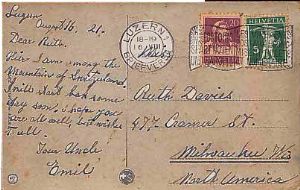 Luzern
August 16, 21.
Dear Ruth:
Here I am among the
Mountain of Switzerland,
some
day soon. I hope you
are all well, best wishes
to all.
Your Uncle
Emil
LUZERN 1
BRIEFVERSAND
20
5
HELVETIA
Ruth Davies
477 Cramer St.
Milwaukee Wis.
North America